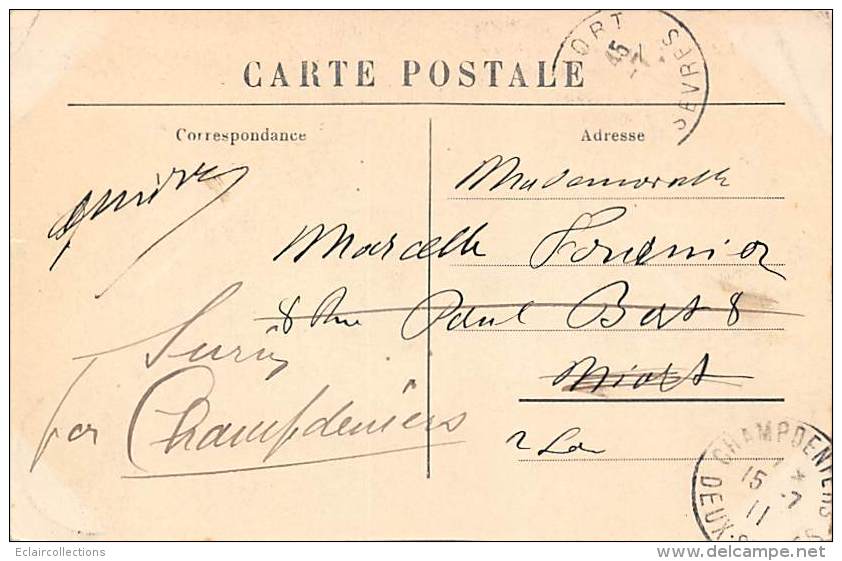 CARTE POSTALE
Correspondance
Adresse
Mademoiselle
Marcelle Fournier
8 Rue Paul Bert 8
Niort
Surin
par Champdeniers
ORT
15
SEVRES
CHAMPDENIERS
15 7
11
DEUX-S
Eclaircollections
www.delcampe.net